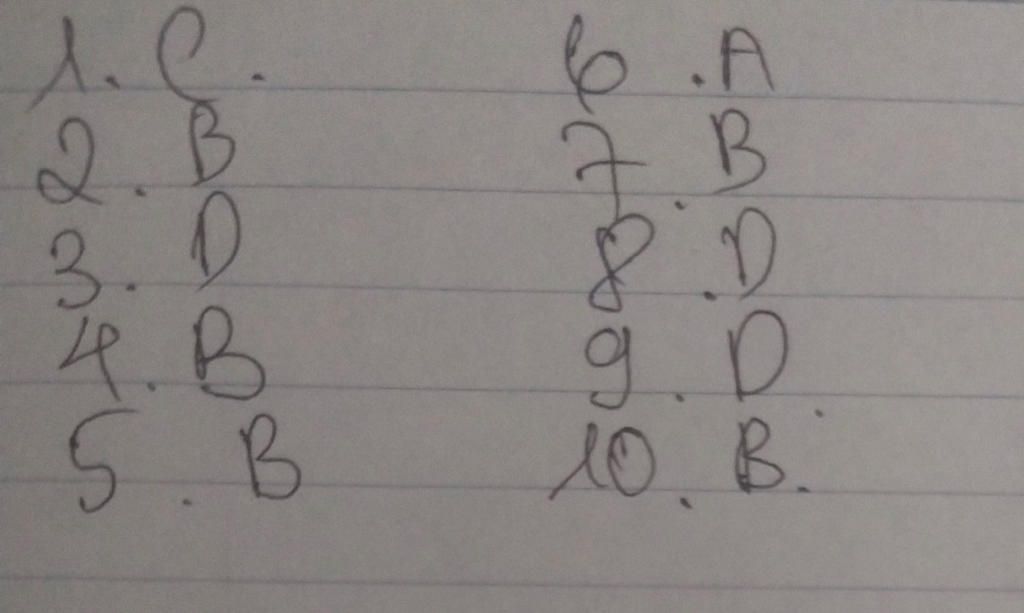 1. C.
2. B
3. D
4. B
5. B
6. A
7. B
8. D
9. D.
10. B.